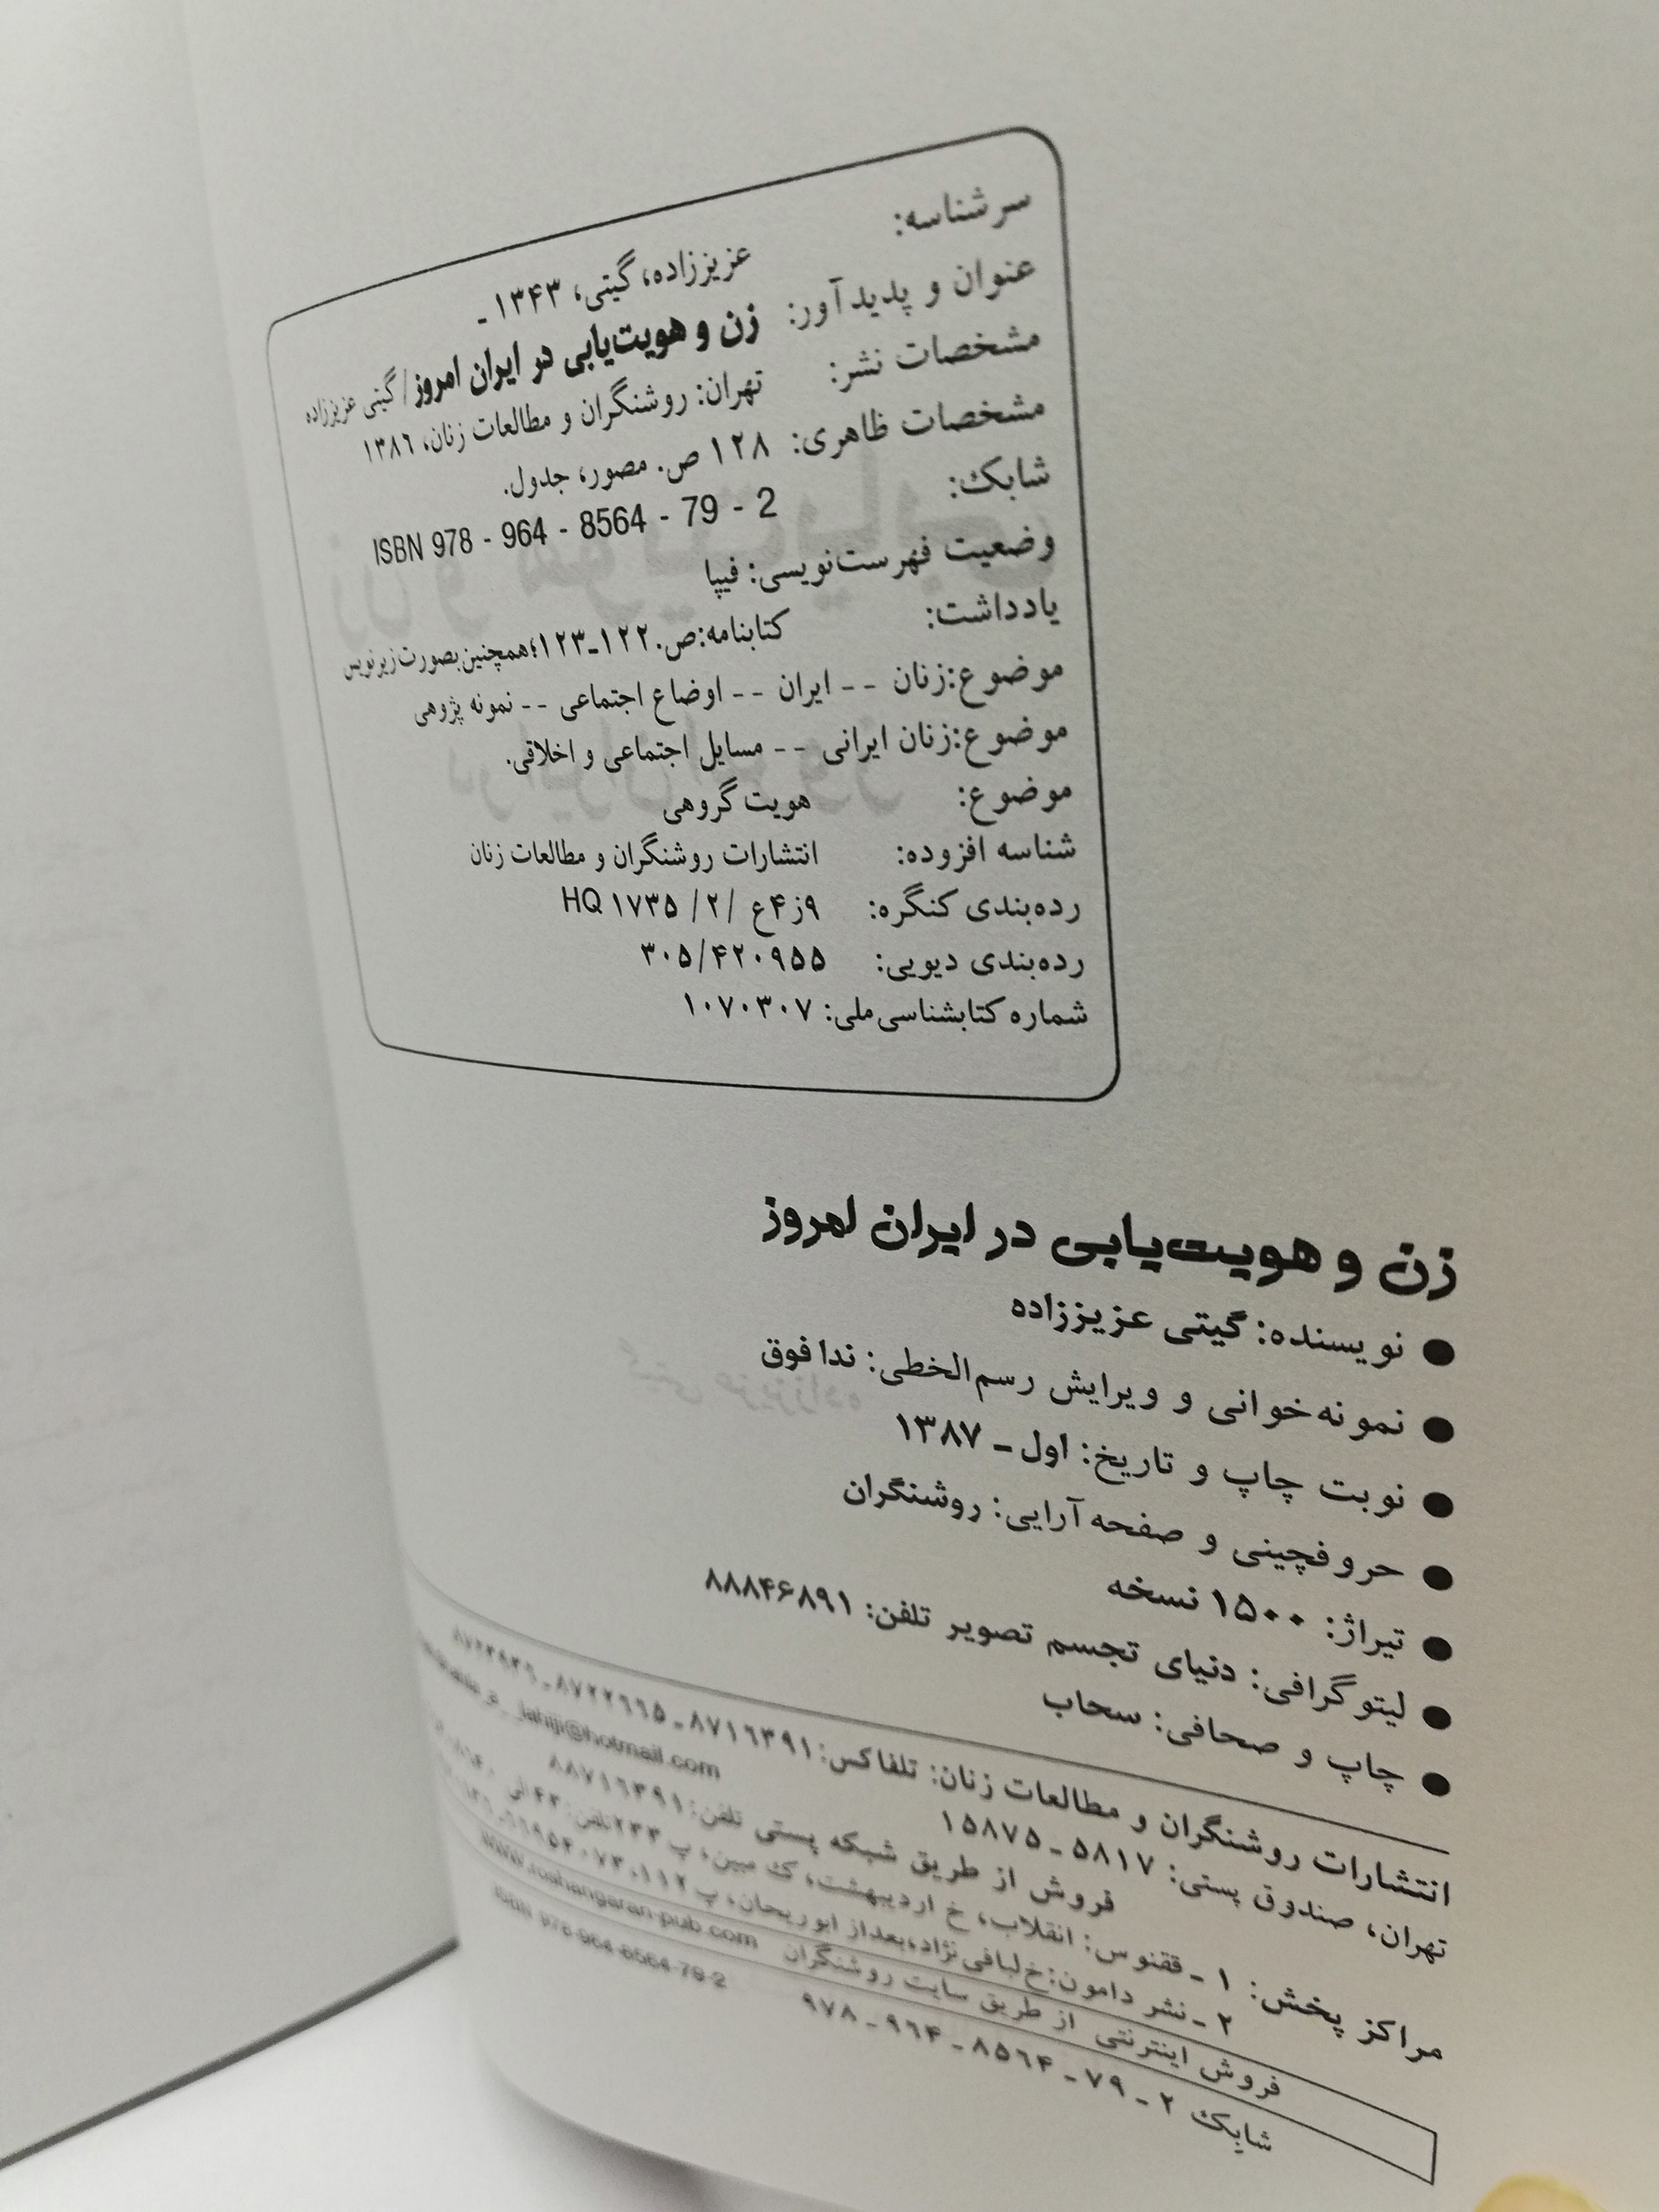 سرشناسه: عزیززاده، گیتی، ۱۳۴۳ ـ
عنوان و پدیدآور: زن و هویت‌یابی در ایران امروز / گیتی عزیززاده
مشخصات نشر: تهران: روشنگران و مطالعات زنان، ۱۳۸۶
مشخصات ظاهری: ۱۲۸ ص. مصور، جدول.
شابک: ISBN 978 - 964 - 8564 - 79 - 2
وضعیت فهرست‌نویسی: فیپا
یادداشت: کتابنامه:ص.۱۲۲ـ۱۲۳؛همچنین‌بصورت‌زیرنویس
موضوع:زنان -- ایران -- اوضاع اجتماعی -- نمونه پژوهی
موضوع:زنان ایرانی -- مسایل اجتماعی و اخلاقی.
موضوع: هویت گروهی
شناسه افزوده: انتشارات روشنگران و مطالعات زنان
رده‌بندی کنگره: ۹ز۴ع /۲/ HQ ۱۷۳۵
رده‌بندی دیویی: ۳۰۵/۴۲۰۹۵۵
شماره کتابشناسی‌ملی: ۱۰۷۰۳۰۷
زن و هویت‌یابی در ایران امروز
● نویسنده: گیتی عزیززاده
● نمونه‌خوانی و ویرایش رسم‌الخطی: ندا فوق
● نوبت چاپ و تاریخ: اول ـ ۱۳۸۷
● حروفچینی و صفحه‌آرایی: روشنگران
● تیراژ: ۱۵۰۰ نسخه
● لیتوگرافی: دنیای تجسم تصویر تلفن: ۸۸۸۴۶۸۹۱
● چاپ و صحافی: سحاب
انتشارات روشنگران و مطالعات زنان: تلفاکس: ۸۷۱۶۳۹۱ ـ ۸۷۲۲۶۶۵ ـ
تهران، صندوق پستی: ۵۸۱۷ ـ ۱۵۸۷۵ lahiji@hotmail.com
فروش از طریق شبکه پستی تلفن: ۸۸۷۱۶۳۹۱
مراکز پخش: ۱ ـ ققنوس: انقلاب، خ اردیبهشت، ک مبین، پ ۲۳۳ تلفن:
۲ ـ نشر دامون:خ‌لبافی‌نژاد،بعداز ابوریحان، پ ۱۱۲ـ
فروش اینترنتی از طریق سایت روشنگران www.roshangaran-pub.com
شابک ۲ ـ ۷۹ ـ ۸۵۶۴ ـ ۹۶۴ ـ ۹۷۸ ISBN 978-964-8564-79-2